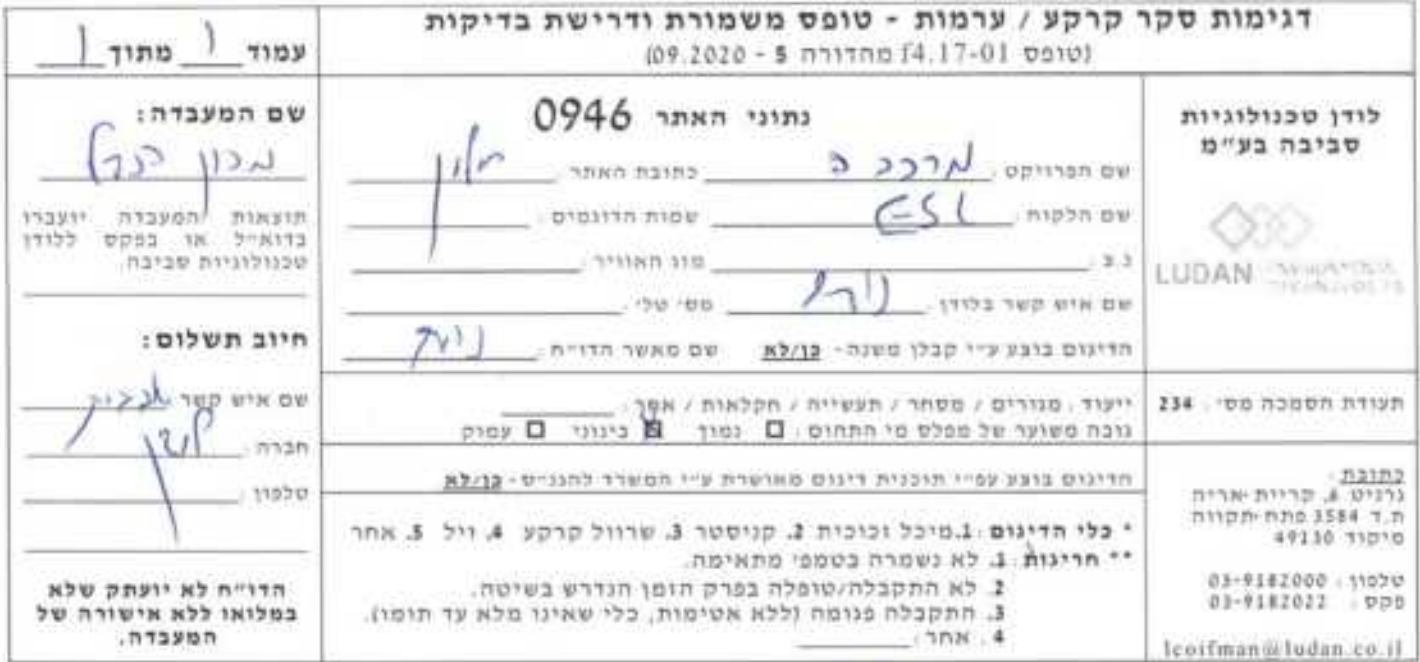 דגימות סקר קרקע / ערמות - טופס משמורת ודרישת בדיקות
(טופס f4.17-01 מהדורה 5 - 09.2020)
עמוד 1 מתוך 1
לודן טכנולוגיות
סביבה בע"מ
LUDAN
תעודת הסמכה מס': 234
כתובת:
גרניט 6, קריית-אריה
ת.ד 3584 פתח-תקווה
מיקוד 49130
טלפון: 03-9182000
פקס: 03-9182022
lcoifman@ludan.co.il
נתוני האתר 0946
שם הפרויקט: מרכב ה כתובת האתר: חולון
שם הלקוח: ESL שמות הדוגמים:
נ.צ: מזג האוויר:
שם איש קשר בלודן: מס' טלי:
הדיגום בוצע ע"י קבלן משנה- כן/לא שם מאשר הדו"ח:
ייעוד: מגורים / מסחר / תעשייה / חקלאות / אחר:
גובה משוער של מפלס מי התהום: נמוך בינוני עמוק
הדיגום בוצע עפ"י תוכנית דיגום מאושרת ע"י המשרד להגנ"ס- כן/לא
* כלי הדיגום: 1. מיכל זכוכית 2. קניסטר 3. שרוול קרקע 4. ויל 5. אחר
** חריגות: 1. לא נשמרה בטמפ' מתאימה.
2. לא התקבלה/טופלה בפרק הזמן הנדרש בשיטה.
3. התקבלה פגומה (ללא אטימות, כלי שאינו מלא עד תומו).
4. אחר:
שם המעבדה:
מכון הנדל
תוצאות המעבדה יועברו
בדוא"ל או בפקס ללודן
טכנולוגיות סביבה.
חיוב תשלום:
שם איש קשר
חברה: לודן
טלפון:
הדו"ח לא יועתק שלא
במלואו ללא אישורה של
המעבדה.